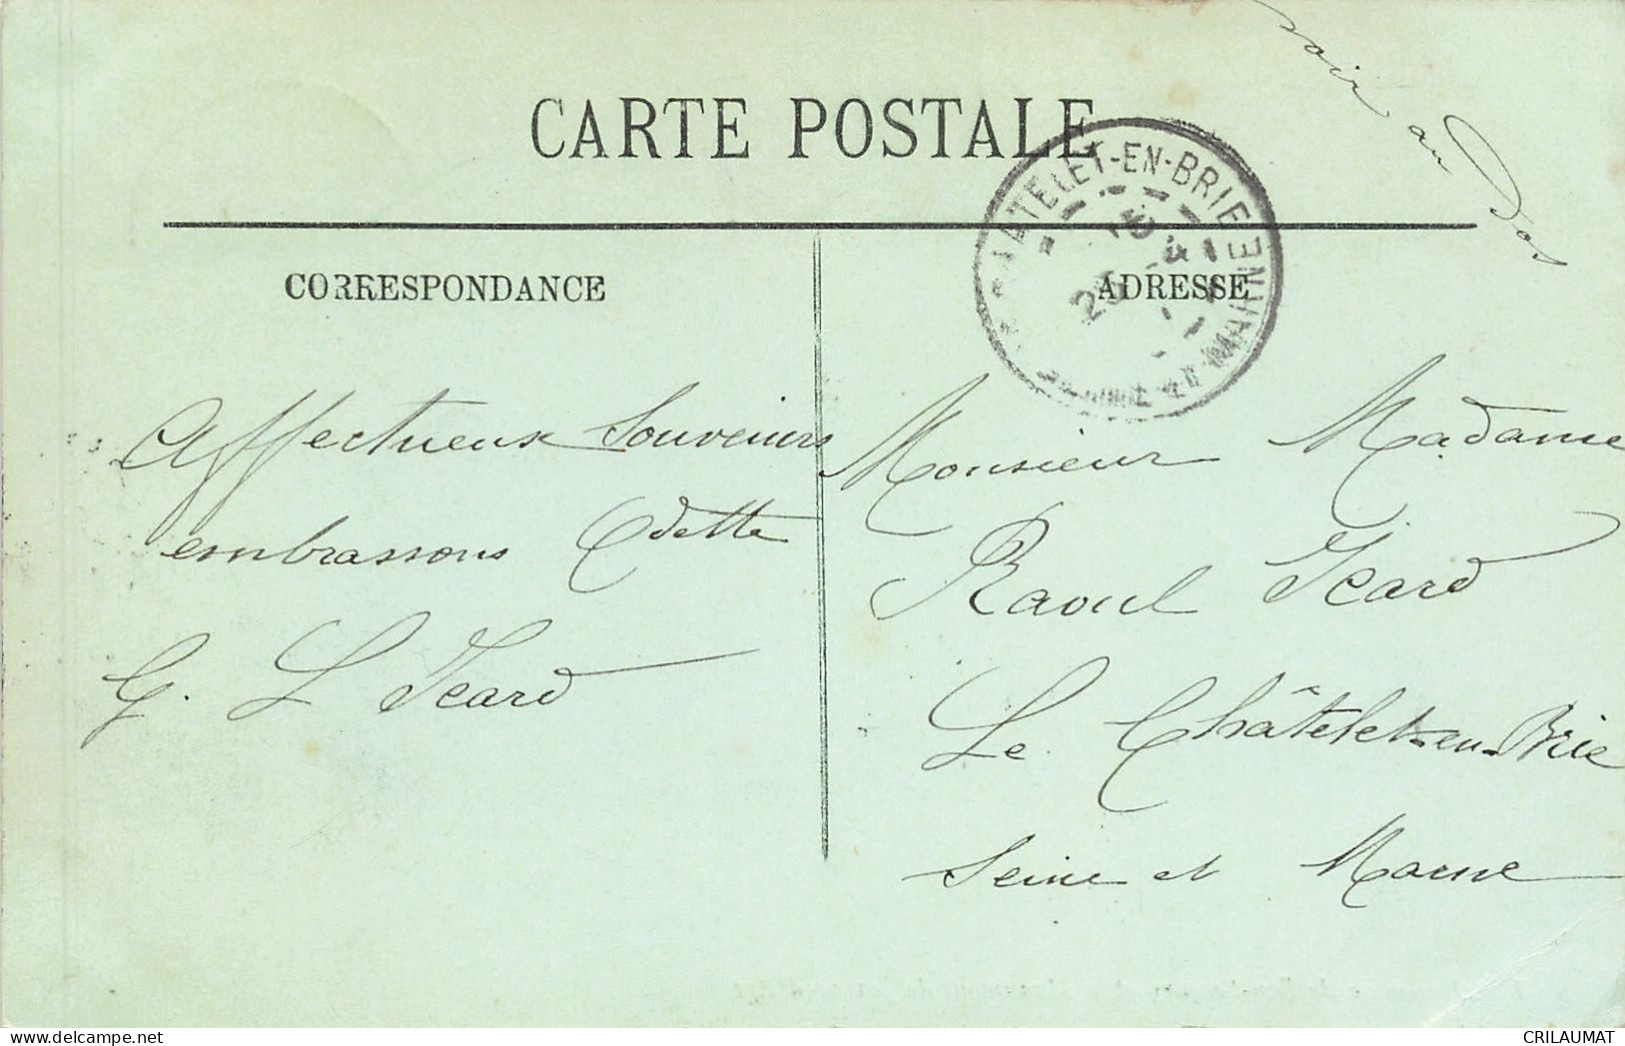 voir au Dos
CARTE POSTALE
CHATELET-EN-BRIE
SEINE-ET-MARNE
CORRESPONDANCE
ADRESSE
Affectueux Souvenirs
embrassons Odette
G. L Icard
Monsieur Madame
Raoul Icard
Le Châtelet-en-Brie
Seine et Marne
www.delcampe.net
CRILAUMAT